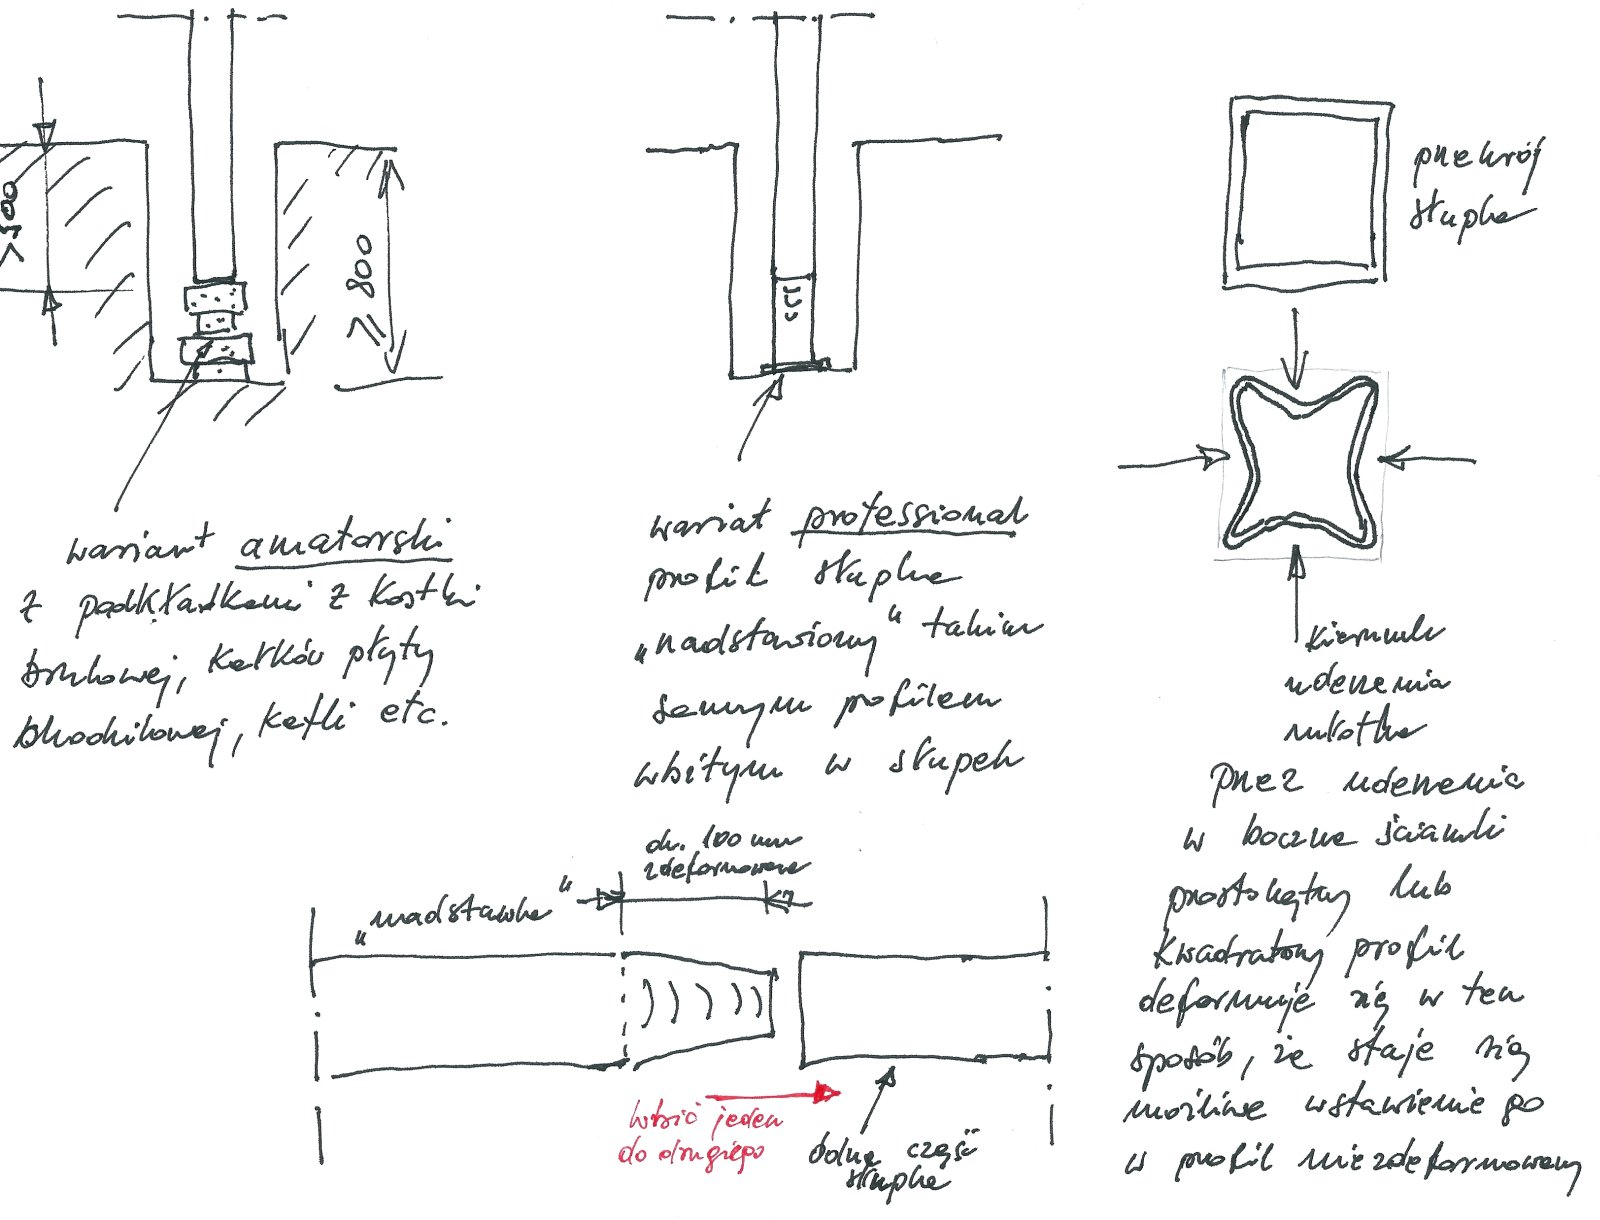 >500
≥ 800
wariant amatorski
z podkładkami z kostki
brukowej, kątków płyty
chodnikowej, kafli etc.
wariat professional
profil słupka
„nadstawiony" takim
samym profilem
wbitym w słupek
przekrój
słupka
kierunek
uderzenia
młotka
Przez uderzenia
w boczne ścianki
prostokątny lub
kwadratowy profil
deformuje się w ten
sposób, że staje się
możliwe wstawienie go
w profil niezdeformowany
„nadstawka"
ok. 100 mm
zdeformowane
wbić jeden
do drugiego
dolna część
słupka